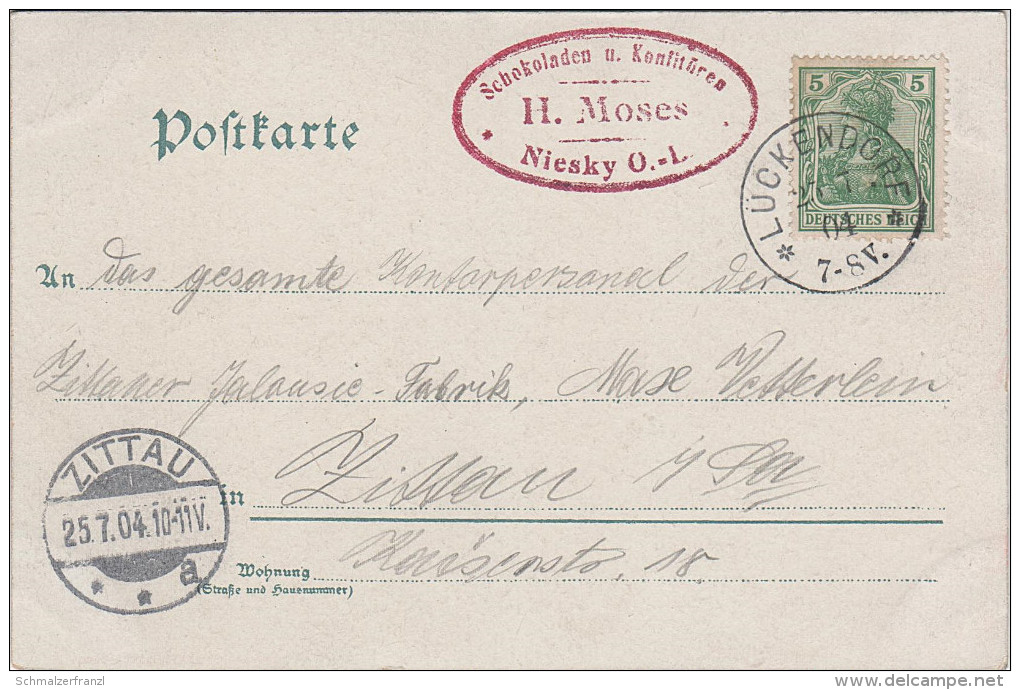 Schokoladen u. Konfitüren
H. Moses
Niesky O.-L.
5 5
DEUTSCHES REICH
LÜCKENDORF
7.
04
7-8V.
Postkarte
An das gesamte Kontorpersonal der
Zittauer Jalousie-Fabrik, Max Vetterlein
in Zittau i/Sa
Wohnung Kaiserstr. 18
(Straße und Hausnummer)
ZITTAU
25.7.04.10-11V.
a
Schmalzerfranzl
delcampe.net